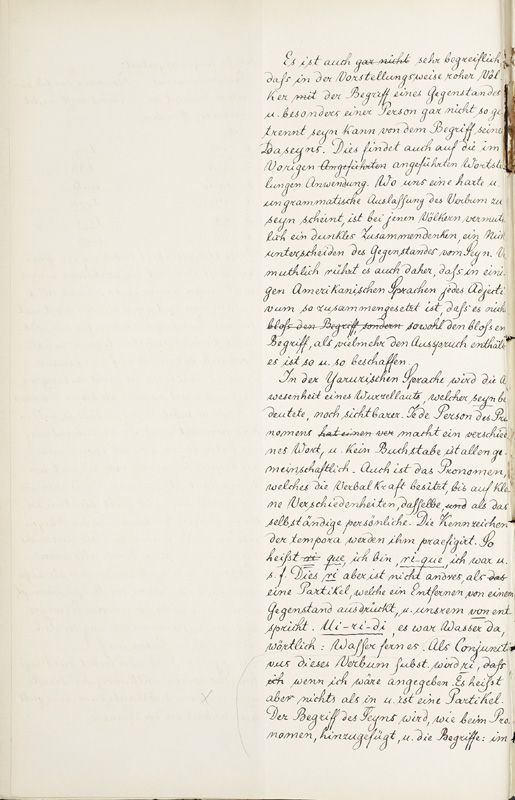 Es ist auch gar nicht sehr begreiflich
daſs in der Vorstellungsweise roher Völ-
ker mit der Begriff eines Gegenstandes
u. besonders einer Person gar nicht so ge
trennt seyn kann von dem Begriff seines
Daseyns. Dies findet auch auf die im
Vorigen Angeführten angeführten Wortste
lungen Anwendung. Wo uns eine harte u.
ungrammatische Auslassung des Verbum zu
seyn scheint, ist bei jenen Völkern vermuth
lich ein dunkles Zusammendenken, ein Nich
unterscheiden des Gegenstandes vom Seyn. V
muthlich rührt es auch daher, daſs in eini-
gen Amerikanischen Sprachen jedes Adjecti
vum so zusammengesetzt ist, daſs es nich
bloſs den Begriff, sondern sowohl den bloſsen
Begriff, als vielmehr den Ausspruch enthält
es ist so u. so beschaffen.
In der Yarurischen Sprache wird die A
wesenheit eines Wurzellauts, welcher seyn be
deutete, noch sichtbarer. Jede Person des Pro
nomens hat einen ver macht ein verschied
nes Wort, u. kein Buchstabe ist allen ge-
meinschaftlich. Auch ist das Pronomen,
welches die Verbalkraft besitzt, bis auf klei
ne Verschiedenheiten, daſselbe und als das
selbständige persönliche. Die Kennzeichen
der tempora werden ihm praefigirt. So
heiſst ri que, ich bin, ri que, ich war u.
s. f. Dies ri aber ist nicht andres, als das
eine Partikel, welche ein Entfernen von einem
Gegenstand ausdrückt, u. unsrem von ent
spricht. Ui-ri-di, es war Wasser da,
wörtlich: Waſser fern es. Als Conjuncti
vus dieses Verbum subst. wird ri, daſs
ich wenn ich wäre angegeben. Es heiſst
aber nichts als in u. ist eine Partikel.
Der Begriff des Seyns wird, wie beim Pro
nomen, hinzugefügt, u. die Begriffe: im